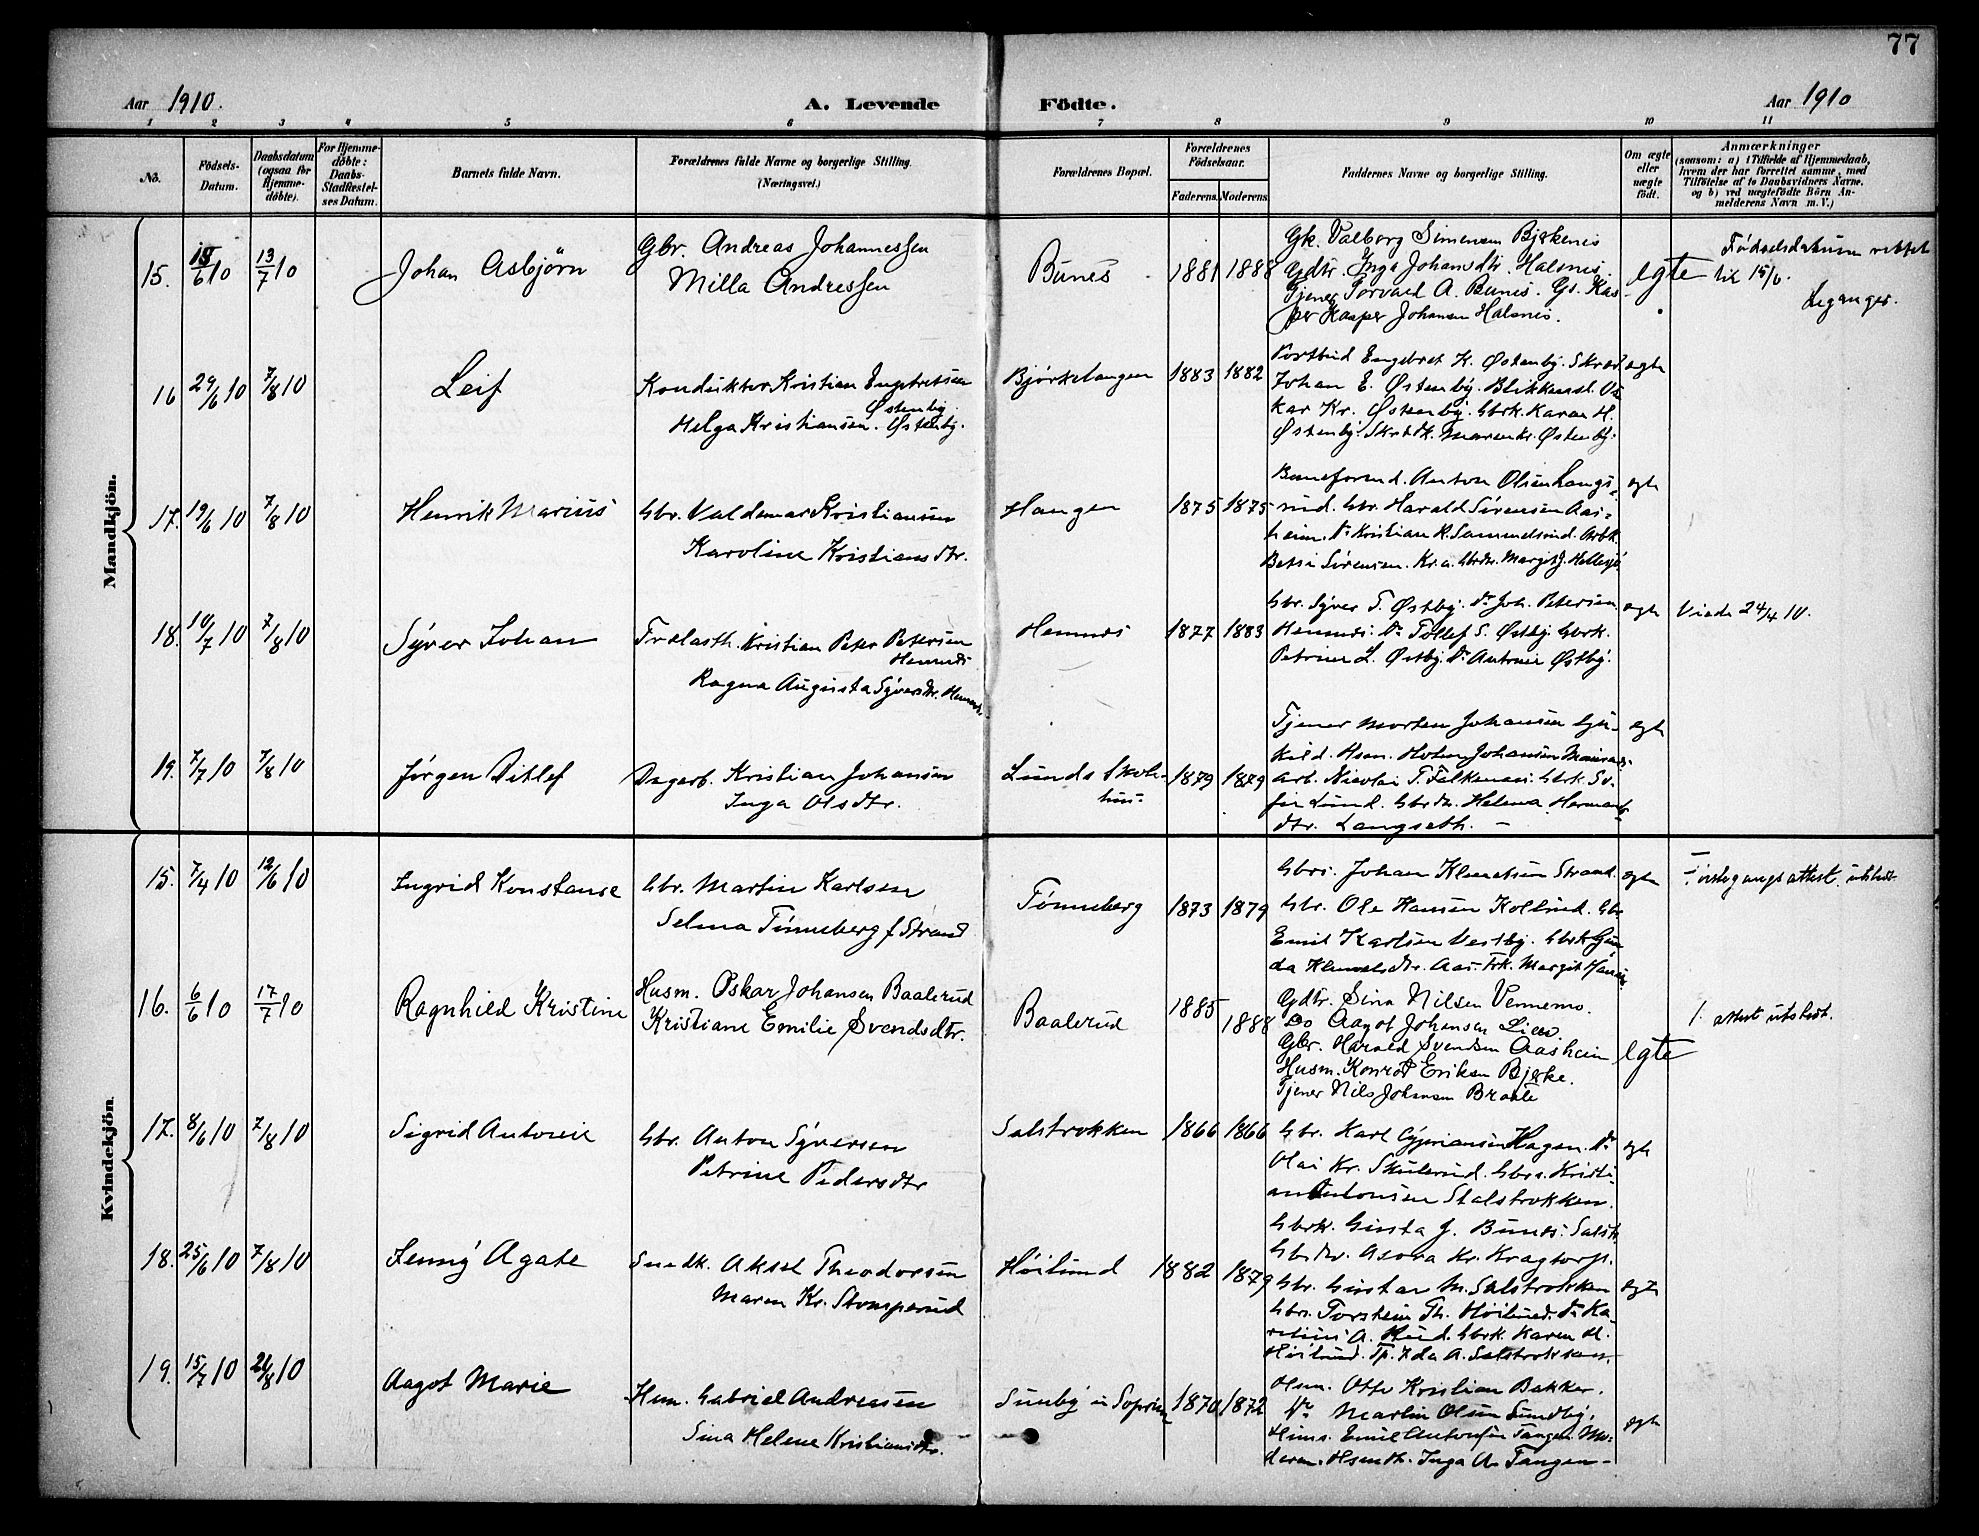 77
Aar 1910.
A. Levende
Födte.
Aar 1910
1 2 3 4 5 6 7 8 9 10 11
No.
Födsels-
Datum.
Daabsdatum
(ogsaa for
Hjemme-
döbte).
For Hjemme-
döbte:
Daabs-
Stadfæstel-
ses Datum.
Barnets fulde Navn.
Forældrenes fulde Navne og borgerlige Stilling.
(Næringsvei.)
Forældrenes Bopæl.
Forældrenes
Födselsaar.
Faderens. Moderens.
Faddernes Navne og borgerlige Stilling.
Om ægte
eller
uægte
födt.
Anmærkninger
(saasom: a) i Tilfælde af Hjemmedaab,
hvem der har forrettet samme, med
Tilföielse af to Daabsvidners Navne,
og b) ved uægtefödte Börn An-
melderens Navn m. V.)
Mandkjön.
15. 15/6 10 13/7 10
Johan Asbjörn
Gbr. Andreas Johannessen
Milla Andressen
Bunes
1881 1888
Gk. Valborg Simensen Bjerkenis
Gdtr. Inga Johansdtr. Halsnis.
Tjener Torvald A. Bunis. Gs. Kas-
per Kasper Johansen Halsnis.
egte
Födselsdatum rettet
til 15/6.
16 29/6 10 7/8 10
Leif
Konduktor Kristian Engebretsen
Østenby.
Helga Kristiansen. Østenby.
Bjørkelangen
1883 1882
Postbud Engebret K. Østenby. Skræd.
Johan E. Østenby. Blikkensl. Os
kar Kr. Østenby. Gbrk. Karen H.
Østenby. Skrædk. Maren Kr. Østenby.
egte
17. 19/6 10 7/8 10
Henrik Marius
Gbr. Valdemar Kristiansen
Karoline Kristiansdtr.
Haugen
1875 1875
Baneformd. Anton Olsen Langs-
rud. Gbr. Harald Sørensen Aas-
heim. Do Kristian K. Arbk.
Betsi Sørensen. Kr.a. Gbrdtr. Margit J. Hellesjø
egte
18. 10/7 10 7/8 10
Syver Johan
Trælasth. Kristian Peter Petersen
Hemnes
Ragna Augusta Syversdtr. Hemnes.
Hemnes
1877 1883
Gbr. Syver T. Østby. Do Joh. Petersen
Hemnes. Do Tollef S. Østby. Gbrk.
Petrine L. Østby. Do Antonie Østby.
egte
Viede 24/4 10.
19. 7/7 10 7/8 10
Jørgen Ditlef
Dagarb. Kristian Johansen
Inga Olsdtr.
Lunds Skole-
hus.
1879 1879
Tjener Morten Johansen
Hsm. Johansen
arb. Nicolai T. Falkenaas. Gbrk. So-
fie Lund. Gbrdtr. Helena Hermans-
dtr. Langseth. –
egte
Kvindekjön.
15. 7/4 10 12/6 10
Ingrid Konstanse
Gbr. Martin Karlsen
Selma Tønneberg f. Strand
Tønneberg
1873 1879
Gbrs. Johan Klemetsen Strand.
Gbr. Ole Hansen Kollerud. Gbr
Emil Karlsen Vestby. Gbrk. Gun
da Klemetsdtr. Aas. Frk. Margit
egte
attest utstedt
16. 6/6 10 17/7 10
Ragnhild Kristine
Husm. Oskar Johansen Baalerud
Kristiane Emilie Svendsdtr.
Baalerud
1885
1888
Gdtr. Sina Nilsen Vennemo.
Do Aagot Johansen Lien.
Gbr. Harald Svendsen Aasheim
Husm. Konrad Eriksen Bjerke.
Tjener Nils Johansen Braate
egte
attest utstedt.
17. 8/6 10 7/8 10
Sigrid Antonie
Gbr. Anton Syversen
Petrine Pedersdtr
Salstrokken
1866 1866
Gbr. Karl Cyprianssen Haagen. Do
Olai Kr. Skulerud. Gbrs. Kristi-
an Antonsen Stalstrokken.
Gbrk. Gusta J. Bunes. Salstr.
Gbrdtr. Asora Kr. Kragtorp.
egte
18. 25/6 10 7/8 10
Jenny Agate
Snedk. Aksel Theodorsen
Maren Kr. Stomperud
Høilund
1882 1879
Gbr. Gustav M. Salstrokken
Gbrs. Torstein Th. Høilund. Do Ka-
relius A. Rud. Gbrk. Karen M.
Høilund. Tp. Ida A. Salstrokken.
egte
19. 15/7 10 21/8 10
Aagot Marie
Hsm. Gabriel Andreasen
Sina Helene Kristiansdtr.
Sunby u
1870 1872
Hsm. Otto Kristian Bakker.
Do Martin Olsen Sundby.
Hsms. Emil Antonsen Tangen. Mo-
deren. Hsmdtr. Inga A. Tangen –
egte